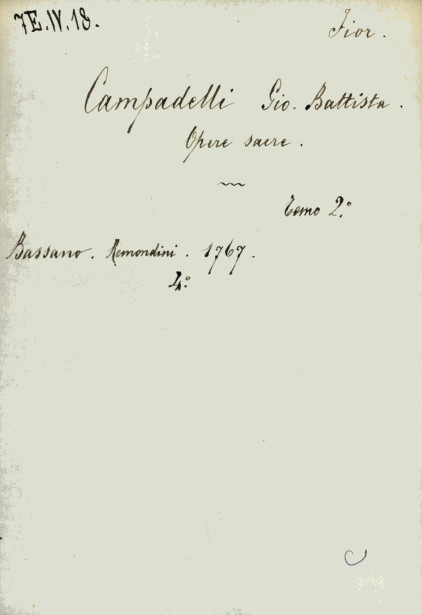 7E.IV.18.
Fior.
Campadelli Gio. Battista.
Opere sacre.
Tomo 2.º
Bassano. Remondini. 1767.
4.º